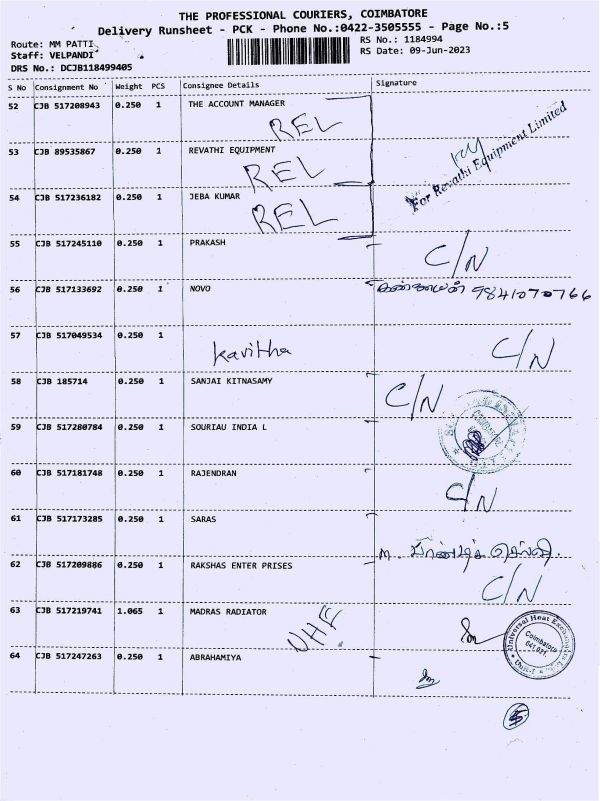 THE PROFESSIONAL COURIERS, COIMBATORE
Delivery Runsheet - PCK - Phone No.:0422-3505555 - Page No.:5
Route: MM PATTI
RS No.: 1184994
Staff: VELPANDI
RS Date: 09-Jun-2023
DRS No.: DCJB118499405
S No Consignment No Weight PCS Consignee Details Signature
52 CJB 517208943 0.250 1 THE ACCOUNT MANAGER
REL
For Revathi Equipment Limited
53 CJB 89535867 0.250 1 REVATHI EQUIPMENT
REL
54 CJB 517236182 0.250 1 JEBA KUMAR
REL
55 CJB 517245110 0.250 1 PRAKASH
C/N
56 CJB 517133692 0.250 1 NOVO 9841070766
57 CJB 517049534 0.250 1
Kavitha C/N
58 CJB 185714 0.250 1 SANJAI KITNASAMY
C/N
59 CJB 517280784 0.250 1 SOURIAU INDIA L
60 CJB 517181748 0.250 1 RAJENDRAN
C/N
61 CJB 517173285 0.250 1 SARAS
62 CJB 517209886 0.250 1 RAKSHAS ENTER PRISES
C/N
63 CJB 517219741 1.065 1 MADRAS RADIATOR
UHE
Universal Heat Exchangers
Coimbatore
641 021
64 CJB 517247263 0.250 1 ABRAHAMIYA